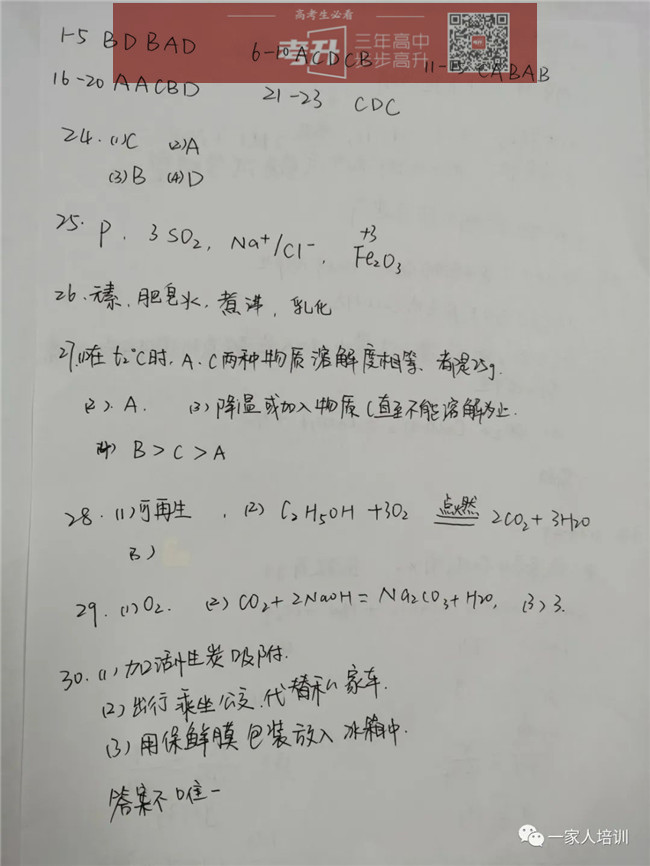 高考生必看
考升 三年高中 步步高升
1-5 BDBAD 6-10 ACDCB CABAB
16-20 AACBD 21-23 CDC
24. (1)C (2)A
(3)B (4)D
25. P, 3SO₂, Na⁺/Cl⁻, +3 Fe₂O₃
26. 元素, 肥皂水, 煮沸, 乳化
27.(1)在t₂℃时, A、C两种物质溶解度相等、都是25g.
(2). A. (3)降温或加入物质C直至不能溶解为止.
(4) B>C>A
28. (1)可再生, (2) C₂H₅OH +3O₂ 点燃 2CO₂+3H₂O
(3)
29. (1)O₂. (2) CO₂+2NaOH=Na₂CO₃+H₂O, (3) 3.
30. (1)加活性炭吸附.
(2)出行乘坐公交,代替私家车.
(3)用保鲜膜包装放入冰箱中.
答案不唯一
一家人培训